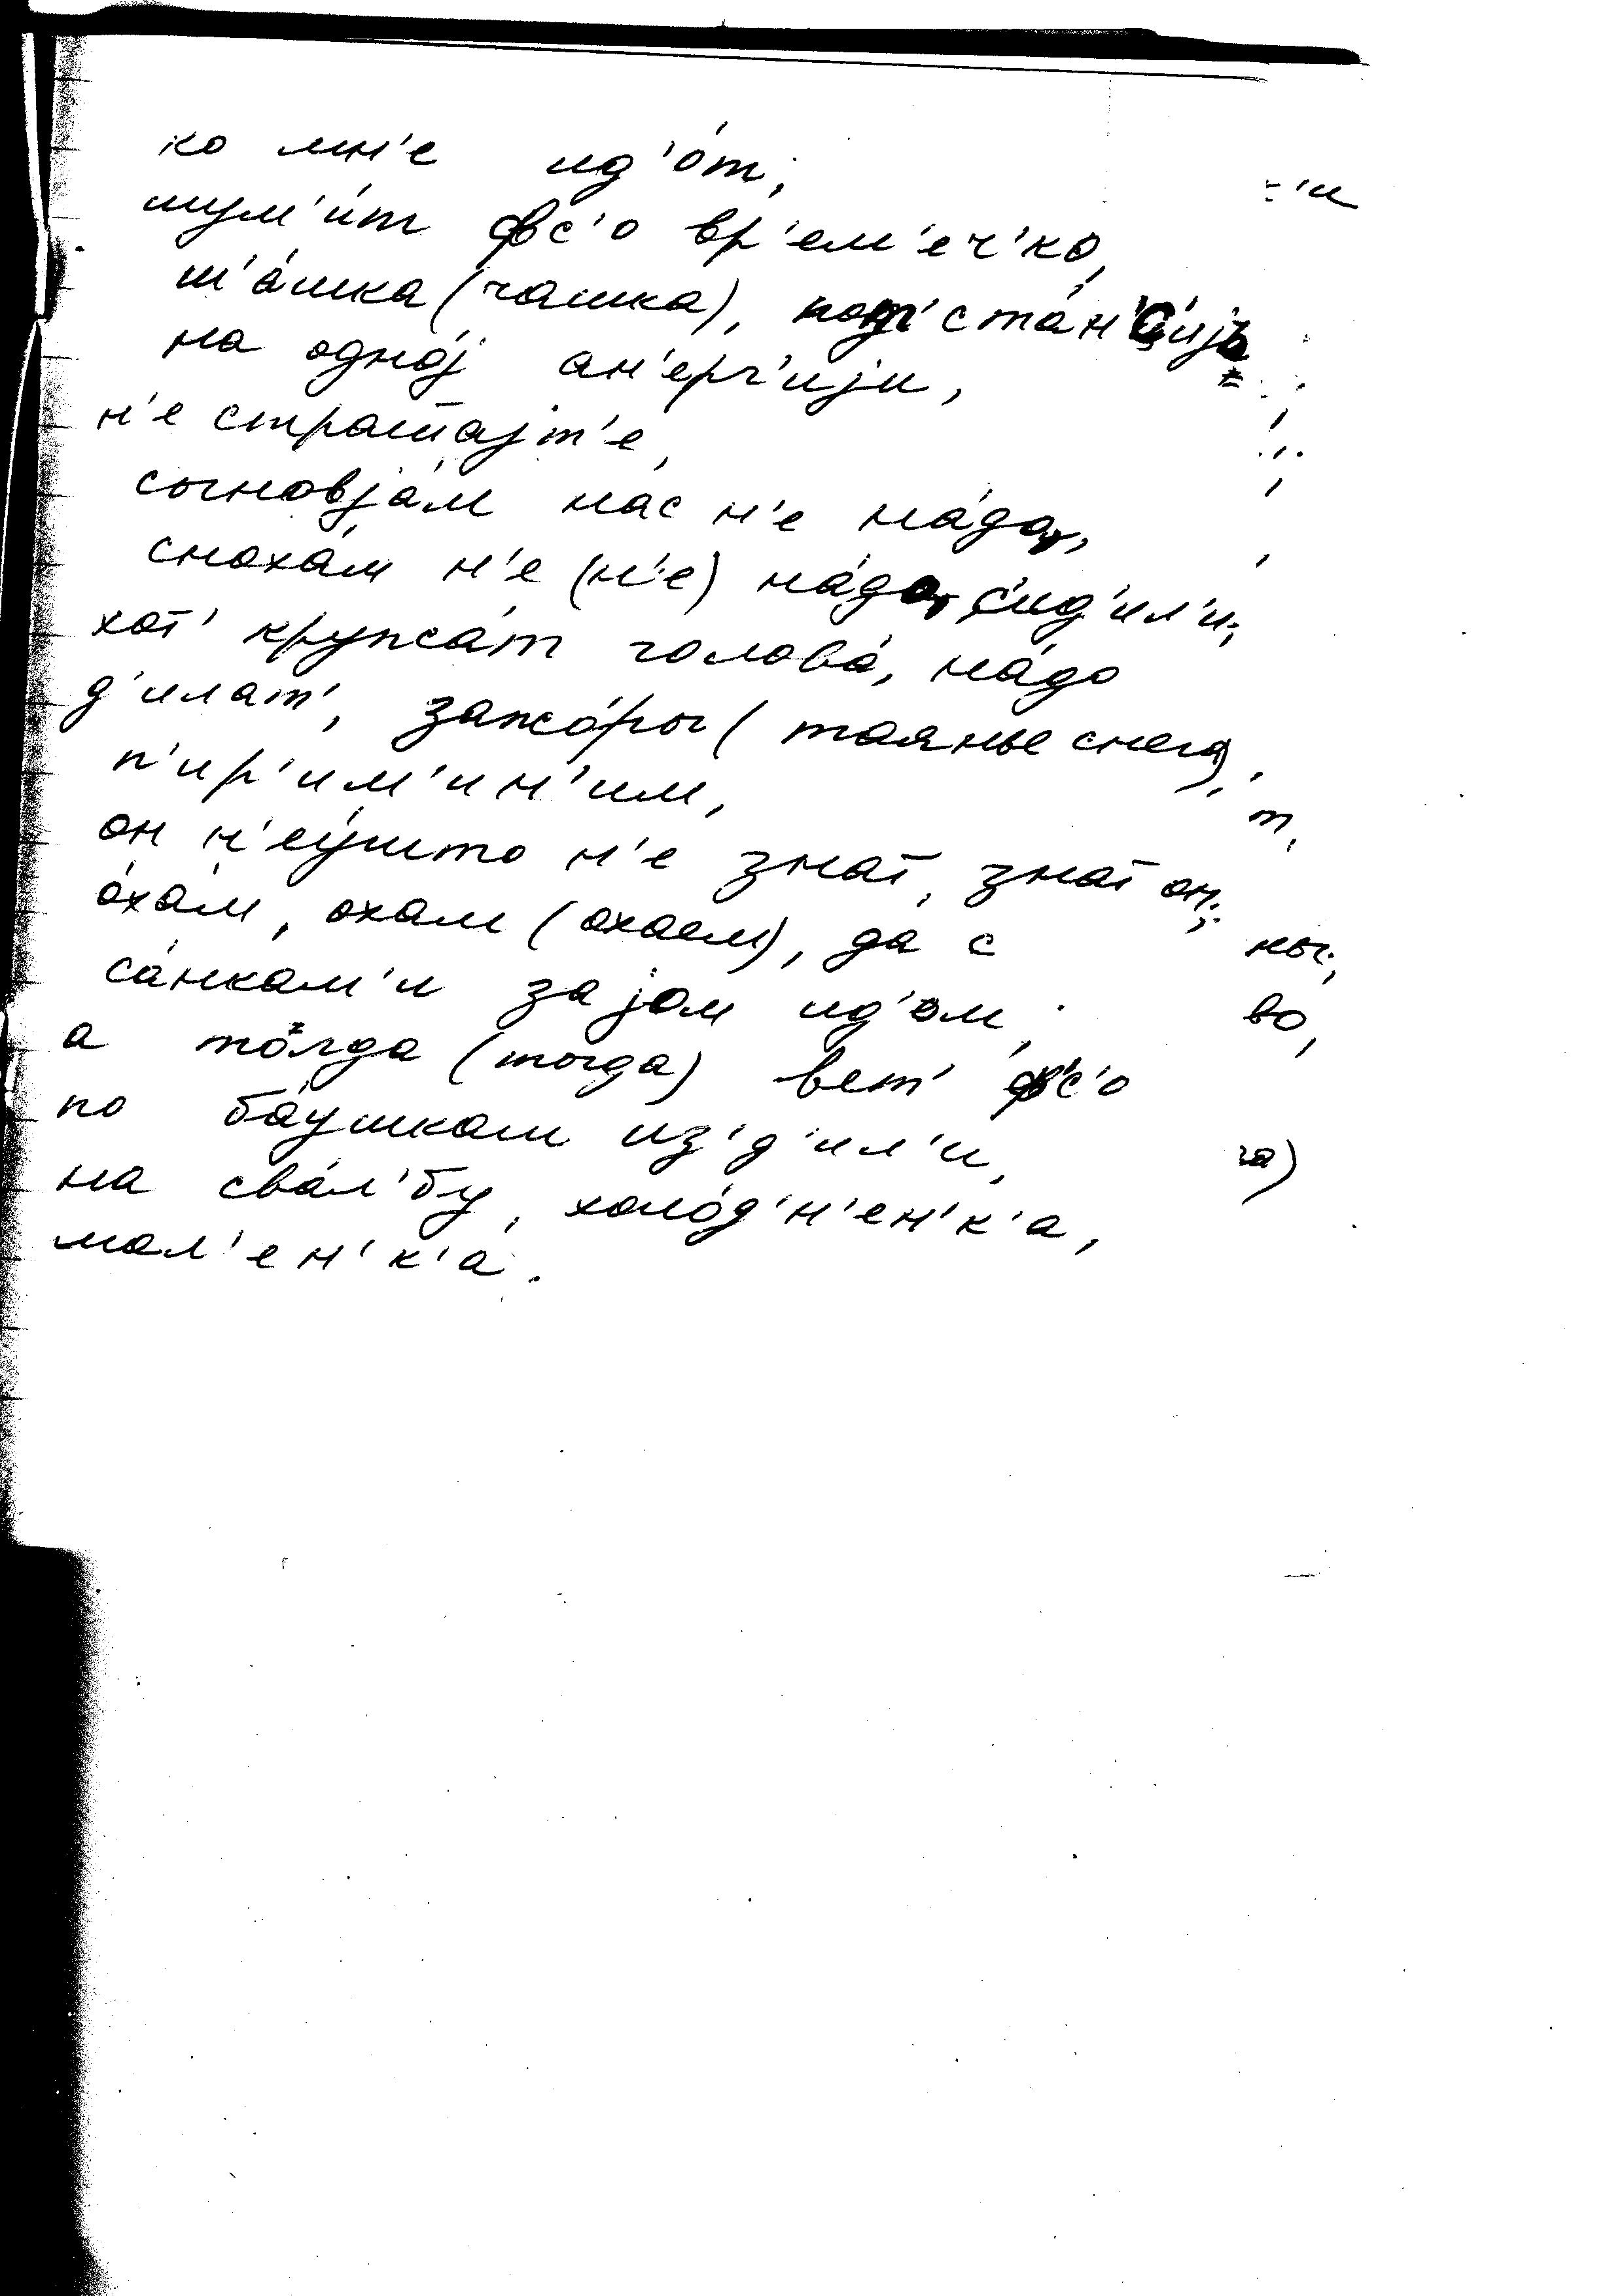 ко мн'е ид'о́т;
шум'и́т фс'о вр'ем'еч'ко,
ш'а́шка (чашка), потстан'с'ијь
на одно́ј ан'ерг'ији,
н'е стращајт'е,
сыновја́м нас н'е на́до,
снохам н'е (н'е) на́до, с'ид'ил'и;
хот' кружа́т голова́, на́до
д'илат', зажо́ры (таянье снега),
п'ир'им'ин'им,
он н'еу́што н'е знат, знат он;
о́хам, охам (охаем), да с
са́нкам'и за јом ид'ом,
а то́лда (тогда) вет' фс'о
по ба́ушкам из'д'ил'и,
на сва́л'бу, холо́д'н'ен'к'а,
мал'ен'к'а.
'и
т,
ны;
во,
га)